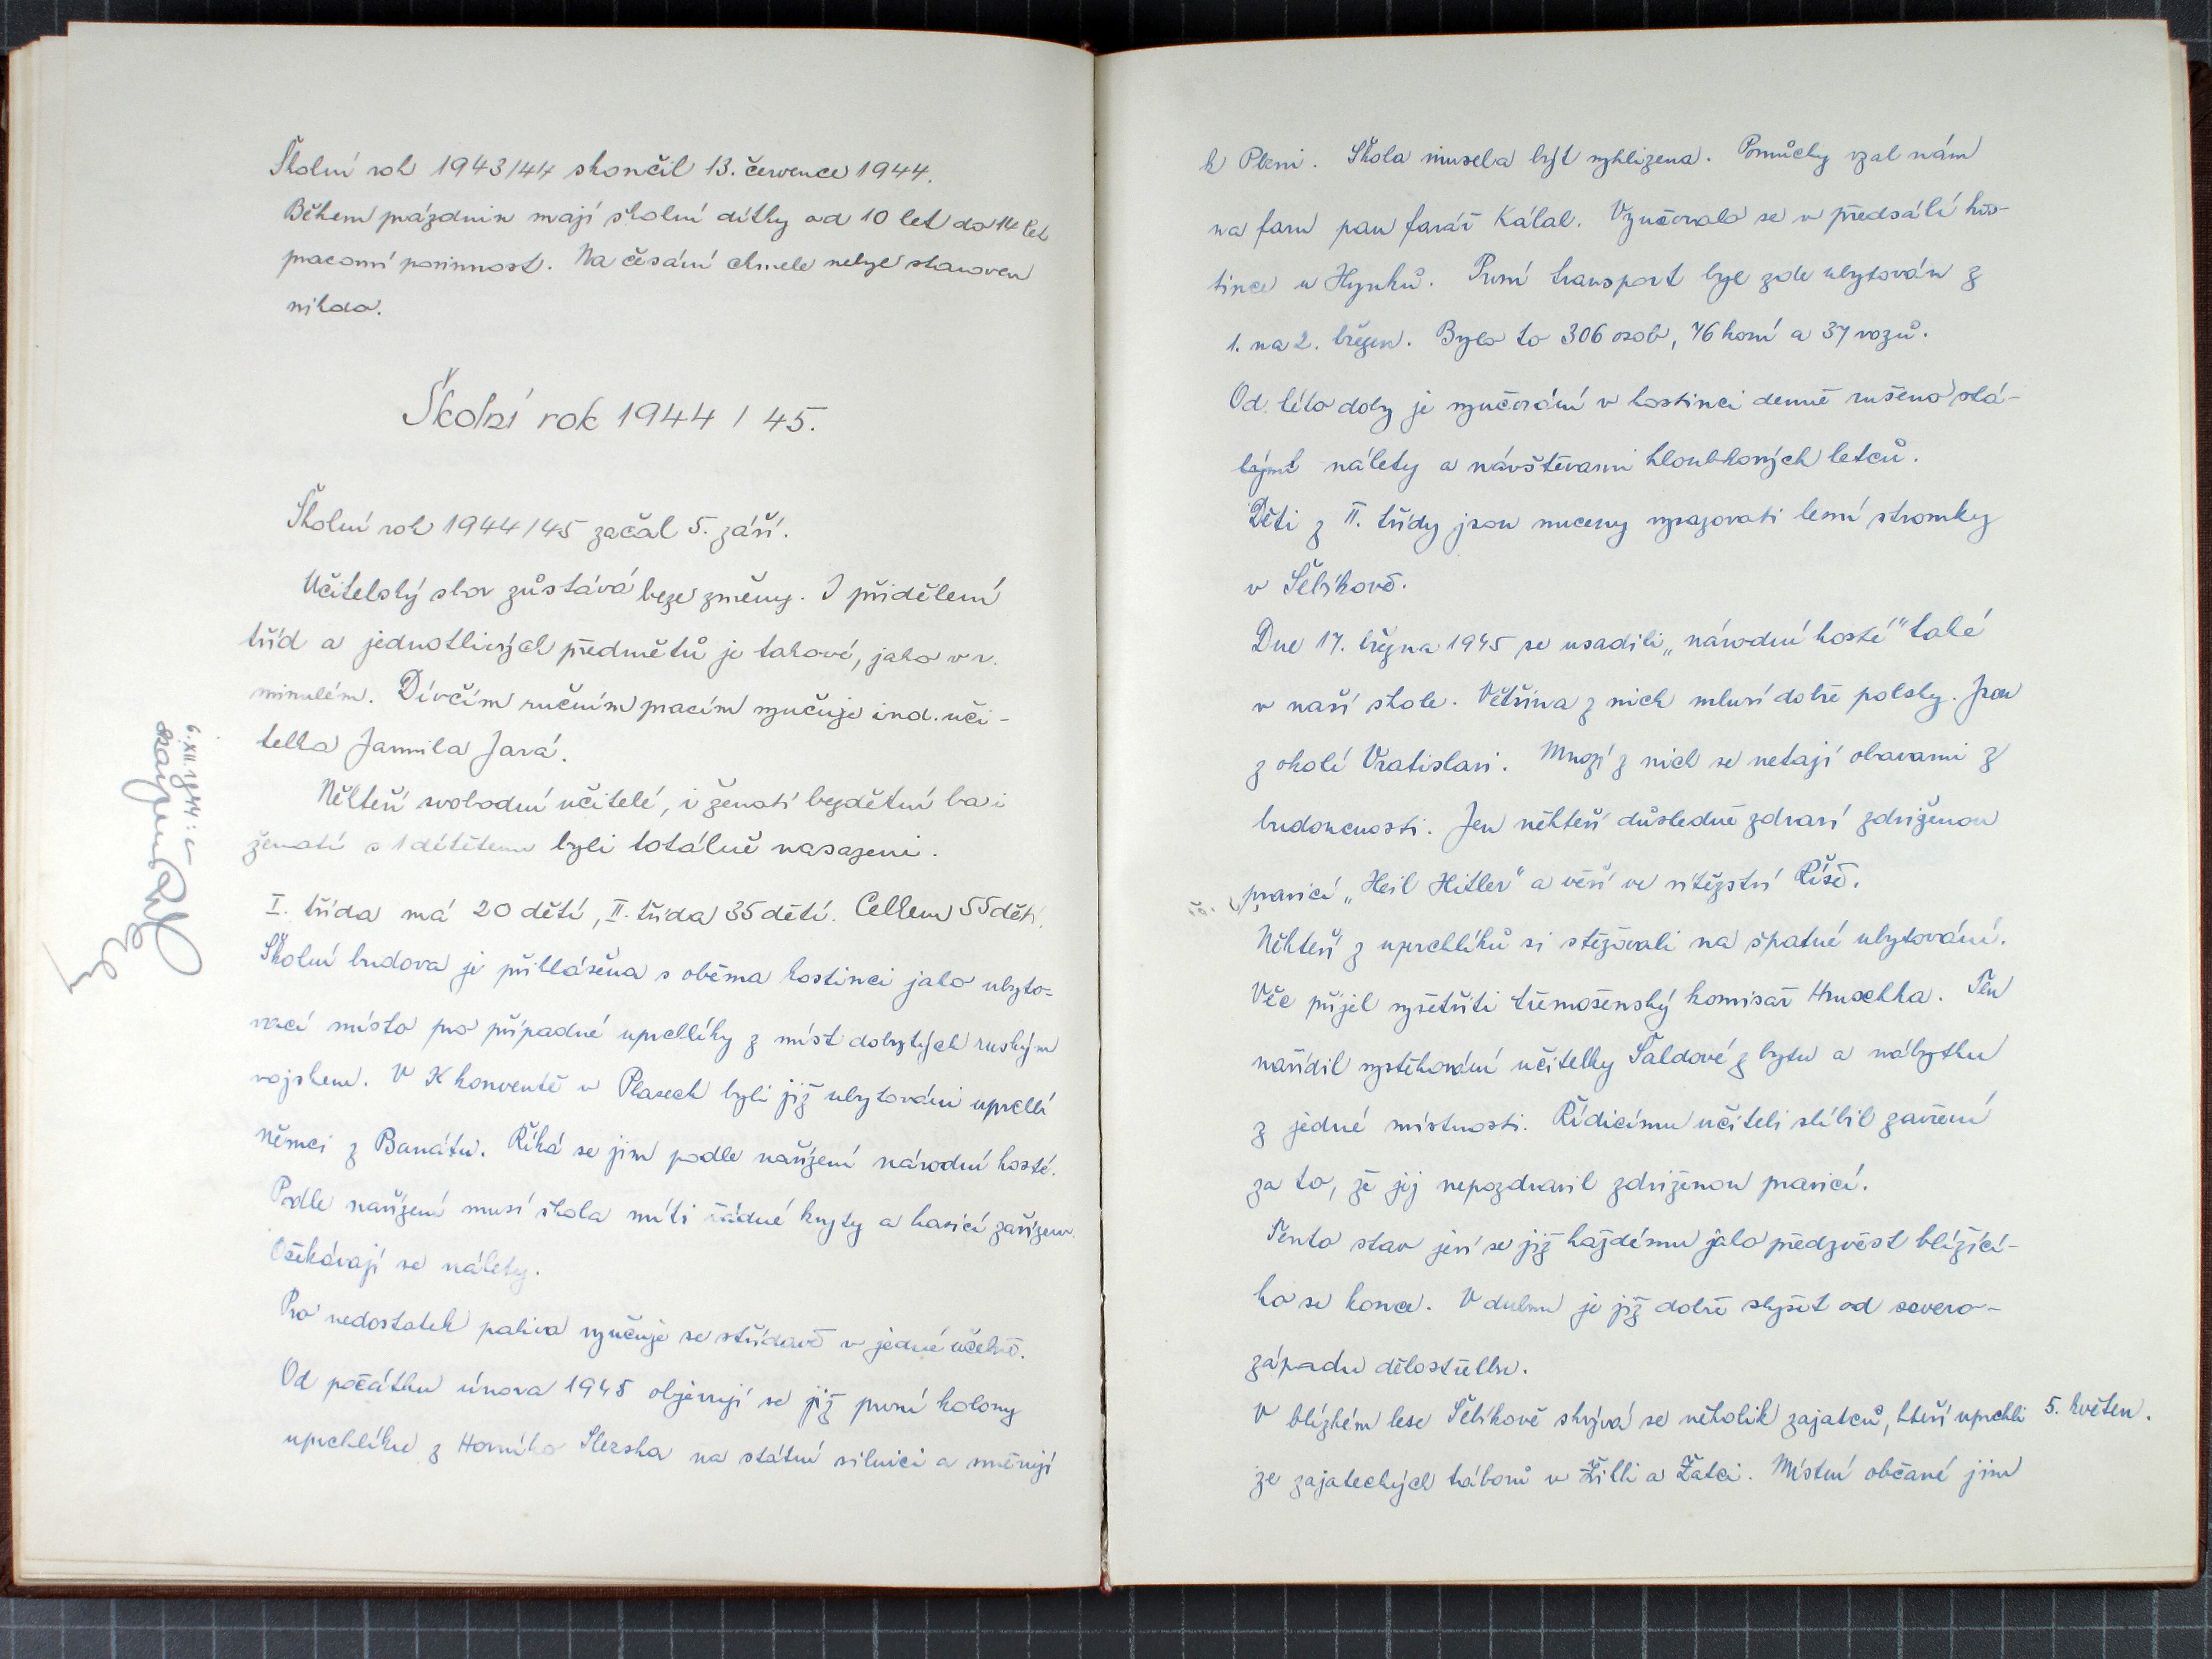 Školní rok 1943/44 skončil 13. července 1944.
Během prázdnin mají školní dítky od 10 let do 14 let
pracovní povinnost. Na česání chmele nebyl stanoven
nikdo.
Školní rok 1944/45.
Školní rok 1944/45 začal 5. září.
Učitelský sbor zůstává beze změny. I přidělení
tříd a jednotlivých předmětů je takové, jako v r.
minulém. Dívčím ručním pracím vyučuje ind. uči-
telka Jarmila Jará.
Někteří svobodní učitelé, i ženatí bezdětní ba i
ženatí s 1 dítětem byli totálně nasazeni.
I. třída má 20 dětí, II. třída 35 dětí. Celkem 55 dětí.
Školní budova je přihlášena s oběma hostinci jako ubyto-
vací místo pro případné uprchlíky z míst dobytých ruským
vojskem. V konventě v Plasech byli již ubytováni uprchlí
Němci z Banátu. Říká se jim podle nařízení národní hosté.
Podle nařízení musí škola míti řádné kryty a hasicí zařízení.
Očekávají se nálety.
Pro nedostatek paliva vyučuje se střídavě v jedné učebně.
Od počátku února 1945 objevují se již první kolony
uprchlíků z Horního Slezska na státní silnici a směřují
6. XII. 1944:
k Plzni. Škola musela být vyklizena. Pomůcky vzal nám
na faru pan farář Kálal. Vyučovalo se v předsálí hos-
tince u Hynků. První transport byl zde ubytován z
1. na 2. březen. Bylo to 306 osob, 76 koní a 37 vozů.
Od této doby je vyučování v hostinci denně rušeno stá-
lými nálety a návštěvami hloubkových letců.
Děti z II. třídy jsou nuceny vysazovati lesní stromky
v Šebíkově.
Dne 17. března 1945 se usadili „národní hosté" také
v naší škole. Většina z nich mluví dobře polsky. Jsou
z okolí Vratislavi. Mnozí z nich se netají obavami z
budoucnosti. Jen někteří důsledně zdraví zdviženou
pravicí „Heil Hitler" a věří ve vítězství Říše.
Někteří z uprchlíků si stěžovali na špatné ubytování.
Věc přijel vyšetřiti třemošenský komisař Hruschka. Ten
nařídil vystěhování učitelky Šaldové z bytu a nábytku
z jedné místnosti. Řídicímu učiteli slíbil zavření
za to, že jej nepozdravil zdviženou pravicí.
Tento stav jeví se již každému jako předzvěst blížící-
ho se konce. V dubnu je již dobře slyšet od severo-
západu dělostřelbu.
V blízkém lese Šebíkově skrývá se několik zajatců, kteří uprchli 5. květen.
ze zajateckých táborů v Žilli a Žatci. Místní občané jim